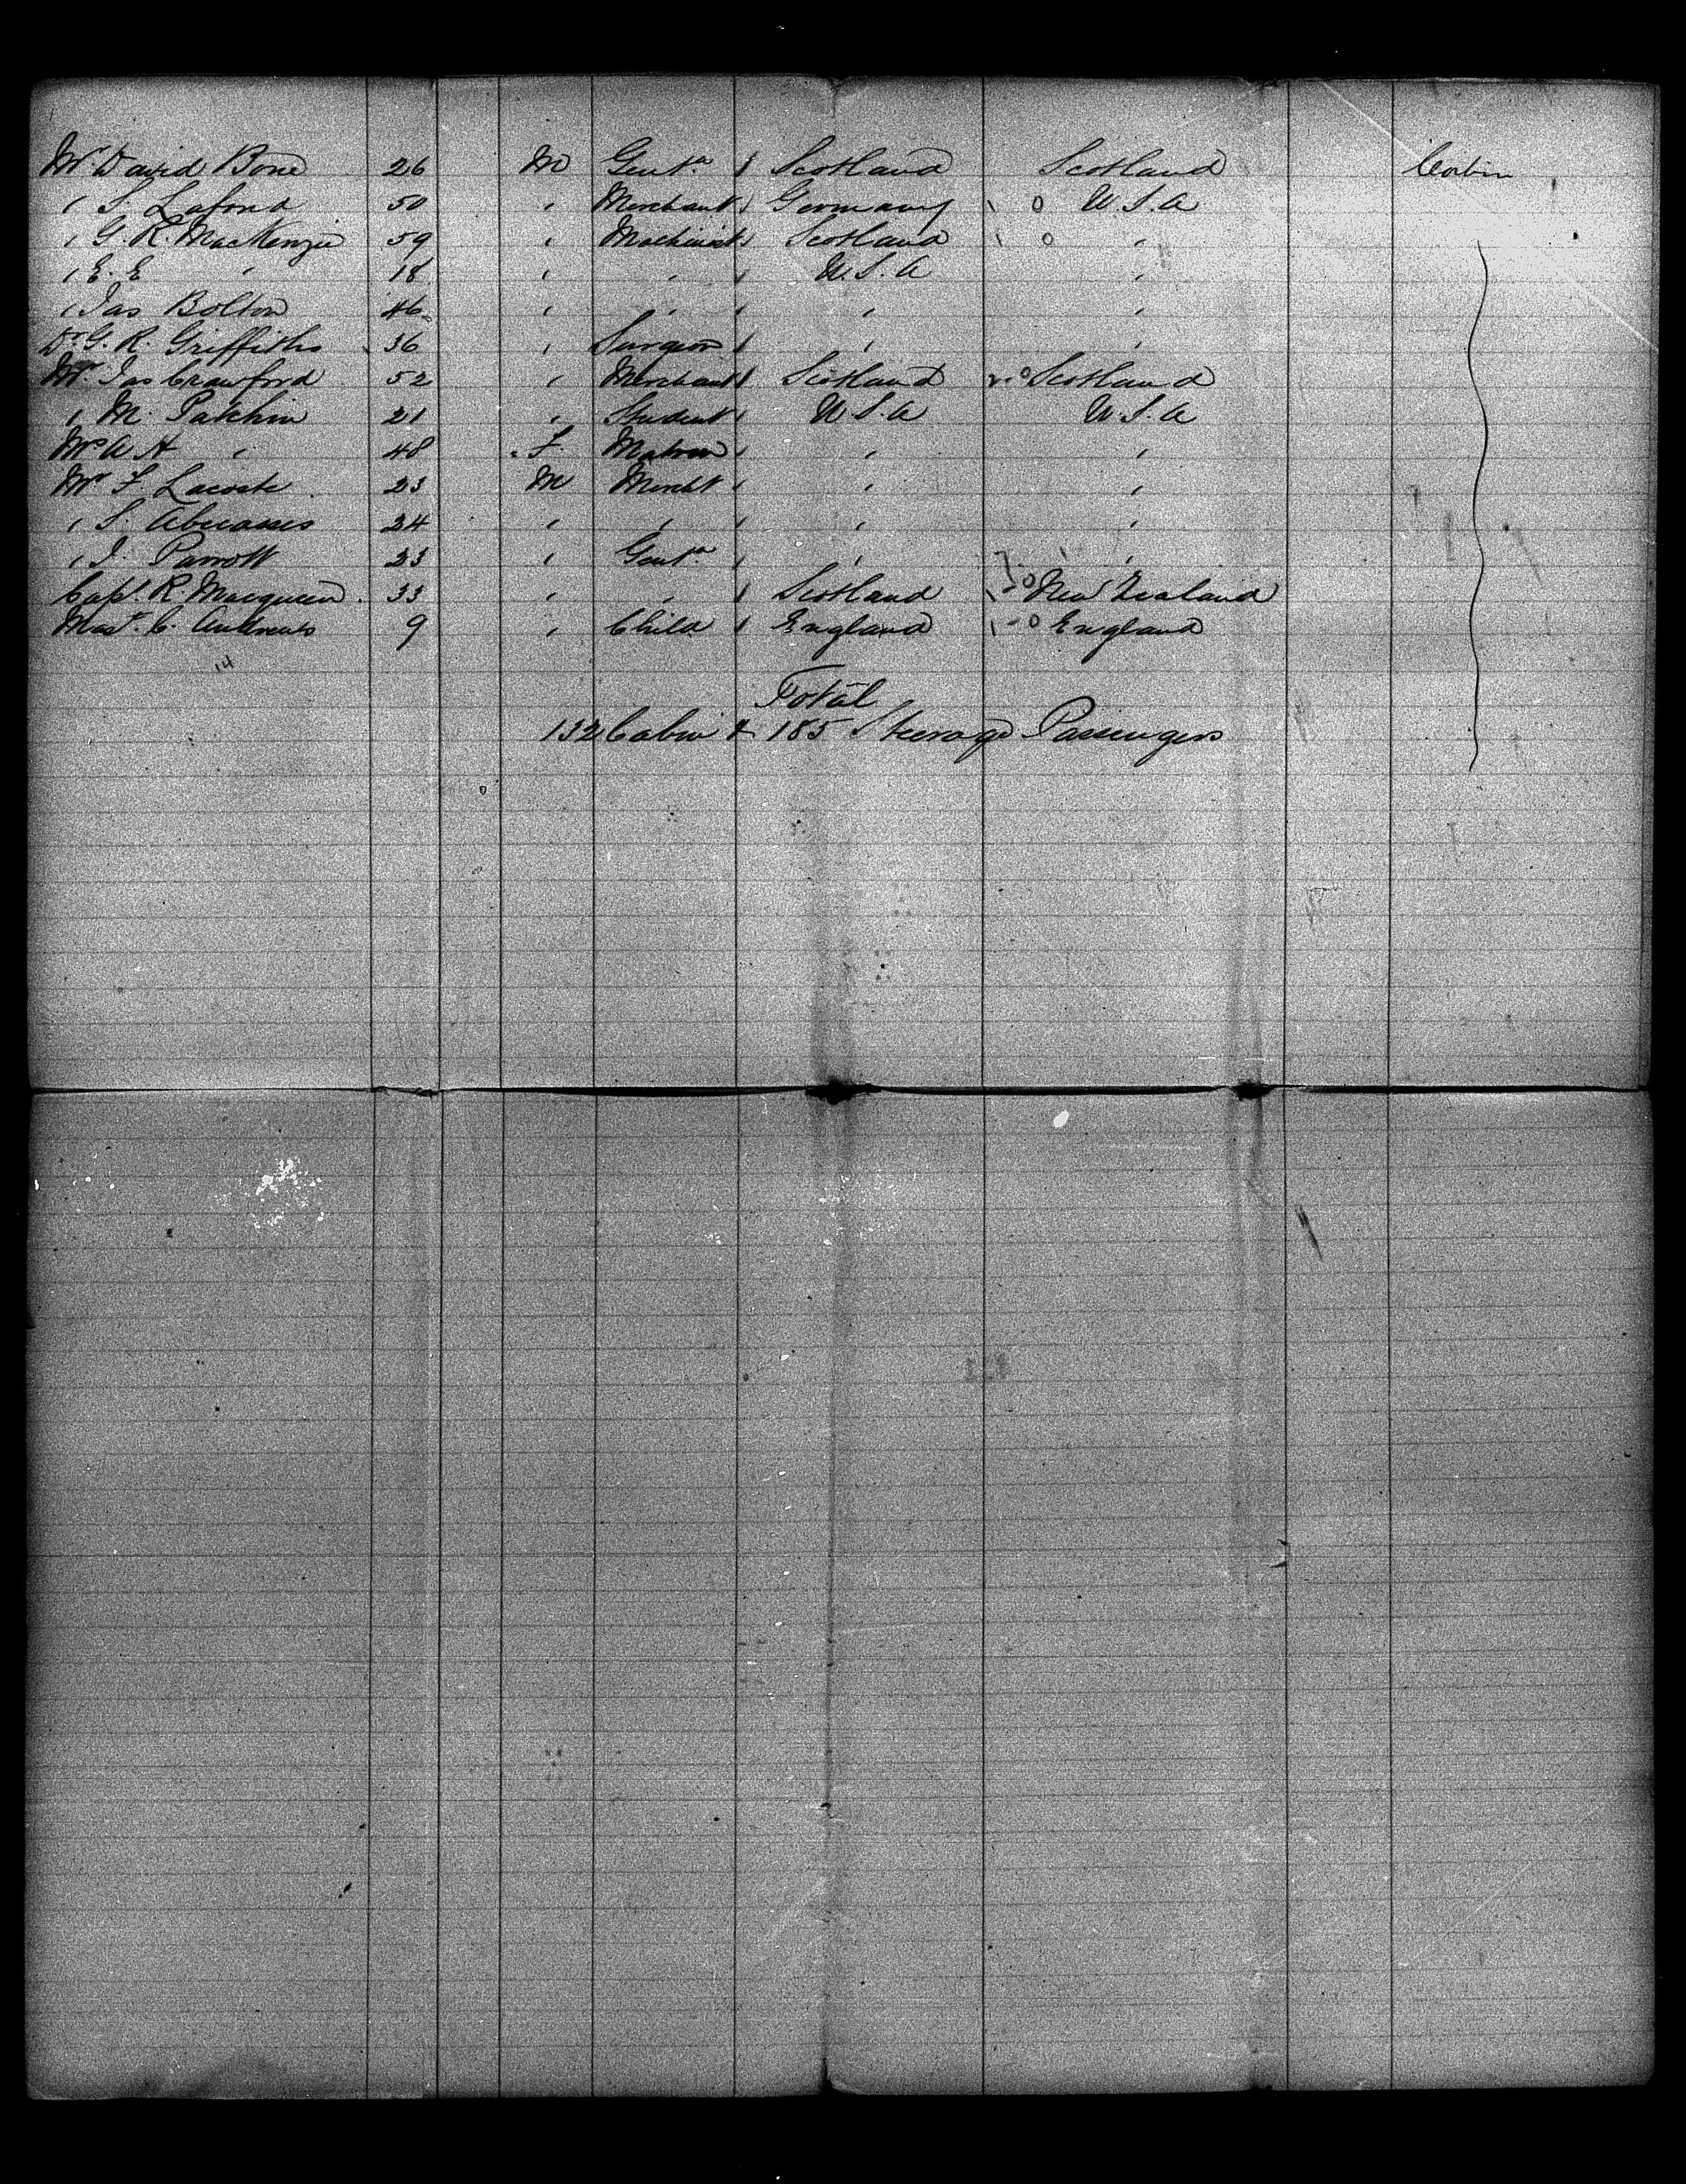 Mr David Bone 26 M Gentn Scotland Scotland Cabin
" S. Lafond 50 " Merchant Germany U.S.A
" G. R. MacKenzie 59 " Machinist Scotland "
" E. E " 18 " " U.S.A "
" Jas Bolton 46 " " " "
Dr G. R. Griffiths 36 " Surgeon " "
Mr Jas Crawford 52 " Merchant Scotland Scotland
" M. Patchin 21 " Student U.S.A U.S.A
Mrs A H " 48 F. Matron " "
Mr F Lacoste 23 M Mercht " "
" S. Abecasis 24 " " " "
" J. Parrott 23 " Gentn " "
Capt. R. Macqueen 33 " " Scotland New Zealand
Mastr C. 9 " Child England England
14
Total
132 Cabin & 185 Steerage Passengers